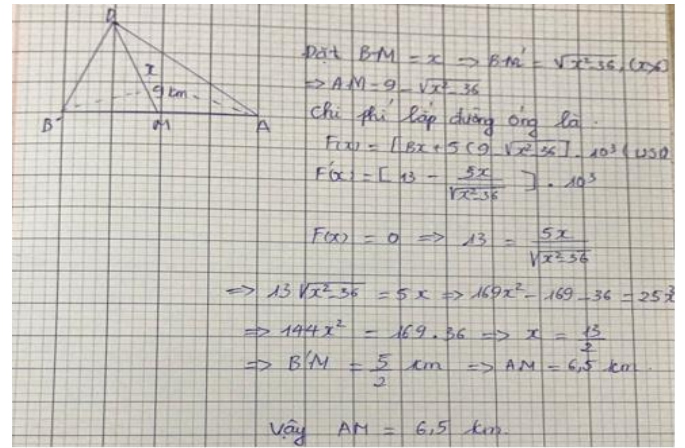 B
x
9 km
B'
M
A
Đặt BM = x => B'M = √x²-36, (x>6)
=> AM = 9 - √x²-36
Chi phí lắp đường ống là :
F(x) = [13x + 5(9 - √x²-36] . 10³ (USD
F'(x) = [13 - 5x/√x²-36] . 10³
F(x) = 0 => 13 = 5x/√x²-36
=> 13√x²-36 = 5x => 169x² - 169 - 36 = 25x²
=> 144x² - 169.36 => x = 13/2
=> B'M = 5/2 km => AM = 6,5 km.
Vậy AM = 6,5 km.